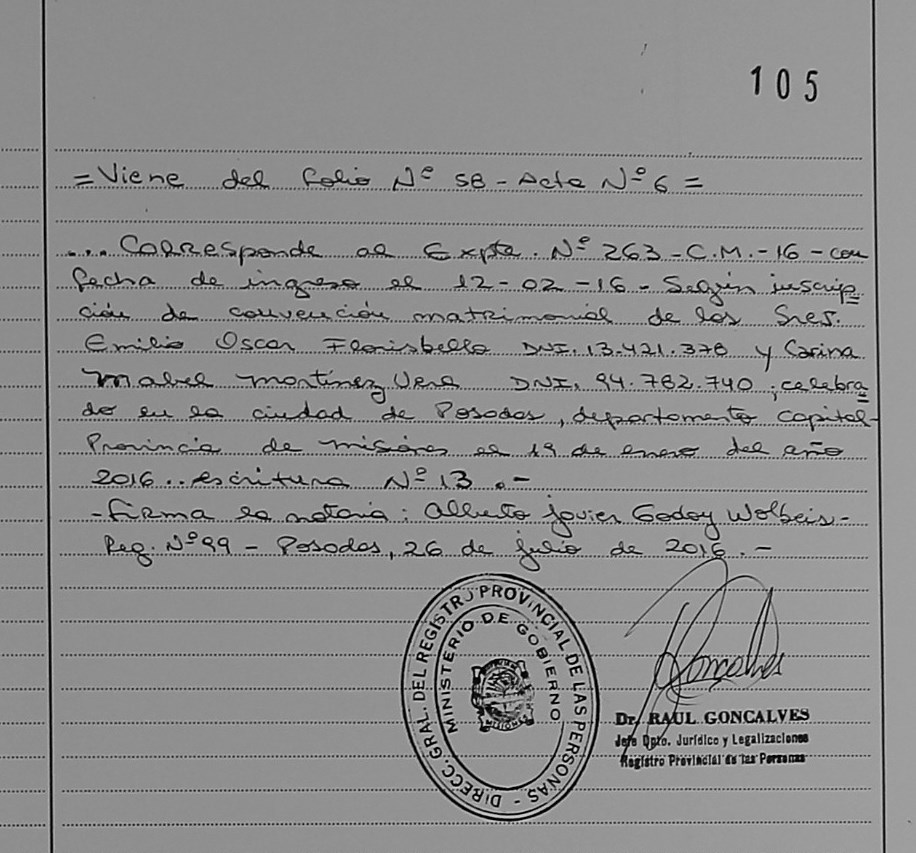 105
= Viene del folio Nº 58 - Acta Nº 6 =
... Corresponde al Expte. Nº 263 - C.M. - 16 - con
fecha de ingreso el 12 - 02 - 16 - Según inscrip
ción de convención matrimonial de los Sres.
Emilio Oscar Florisbello DNI. 13.421.378 y Carina
Mabel Martínez Vera DNI. 94.782.740, celebra
do en la ciudad de Posadas, departamento Capital -
Provincia de Misiones el 19 de enero del año
2016.. escritura Nº 13 . -
- Firma la notaria: Alberto Javier Godoy Wolbeis -
Reg. Nº 99 - Posadas, 26 de julio de 2016. -
DIRECC. GRAL. DEL REGISTRO PROVINCIAL DE LAS PERSONAS -
MINISTERIO DE GOBIERNO
MISIONES
Dr. RAUL GONCALVES
Jefe Dpto. Jurídico y Legalizaciones
Registro Provincial de las Personas